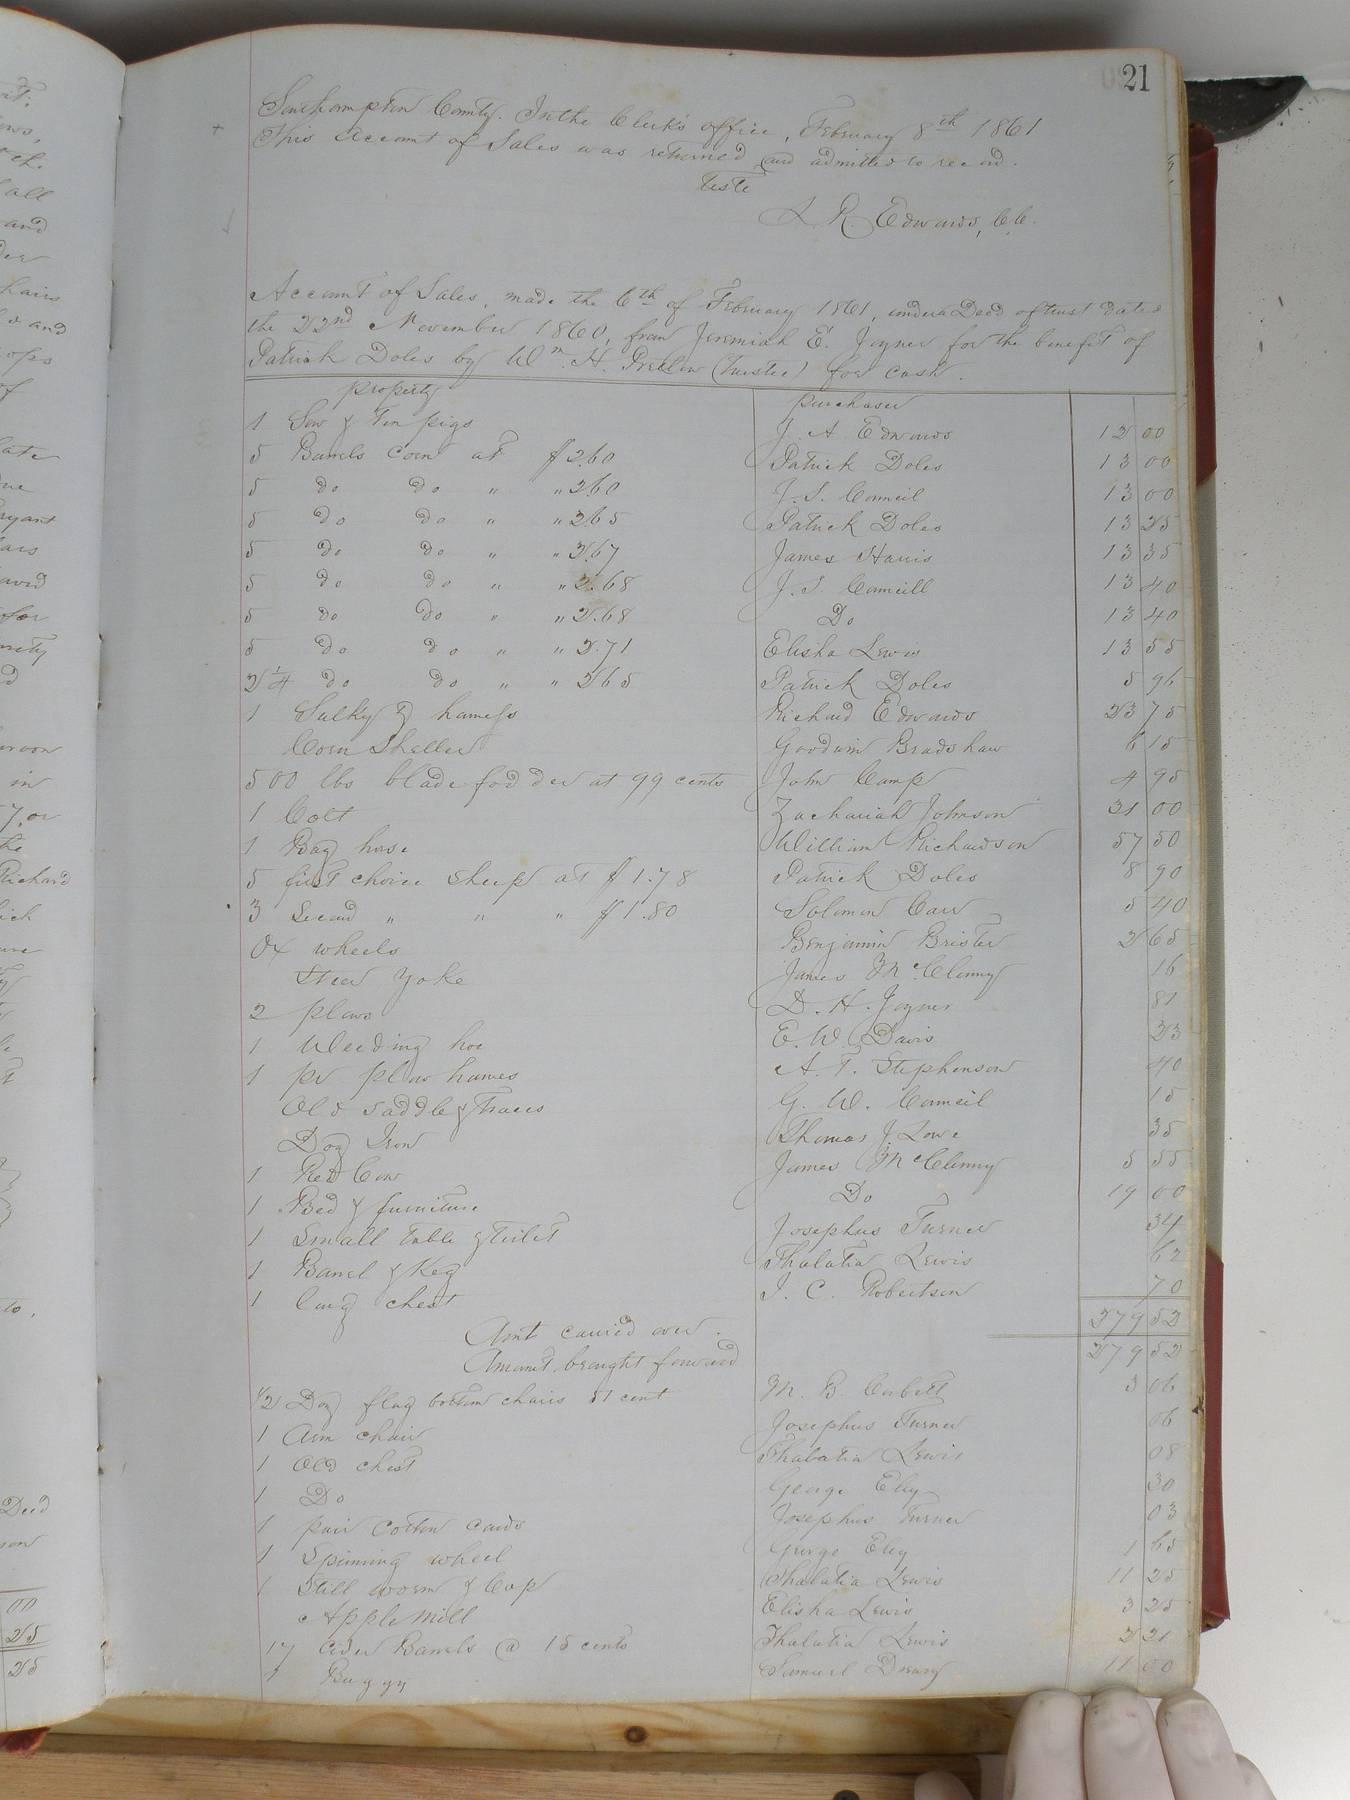 21
Southampton County. In the Clerk's office, February 8th 1861
This Account of Sales was returned and admitted to record.
Teste
L R Edwards, C.C.
Account of Sales, made the 6th of February 1861, under a Deed of trust dated
the 22nd November 1860, from Jeremiah E. Joyner for the benefit of
Patrick Doles by Wm. H. Pretlow (Trustee) for cash.
property purchaser
1 Sow & Ten pigs J. A. Edwards 12 00
5 Barrels Corn at $2.60 Patrick Doles 13 00
5 do do " " 2.60 J. S. Council 13 00
5 do do " " 2.65 Patrick Doles 13 25
5 do do " " 2.67 James Harris 13 35
5 do do " " 2.68 J. S. Councill 13 40
5 do do " " 2.68 Do 13 40
5 do do " " 2.71 Elisha Lewis 13 55
2 1/4 do do " " 2 65 Patrick Doles 5 96
1 Sulky & harness Richard Edwards 23 75
Corn Sheller Goodwin Bradshaw 6 15
500 lbs blade fodder at 99 cents John Camp 4 95
1 Colt Zachariah Johnson 31 00
1 Bay horse William Richardson 57 50
5 first choice Sheep at $1.78 Patrick Doles 8 90
3 Second " " " $1.80 Solomon Carr 5 40
Ox wheels Benjamin Brister 2 65
Steer Yoke James McClenny 16
2 plows D. H. Joyner 81
1 Weeding hoe E. W. Davis 23
1 pr plow hames A. T. Stephenson 40
Old saddle & Traces G. W. Council 15
Dog Iron Thomas J. Lowe 35
1 Red Cow James McClenny 5 55
1 Bed & furniture Do 19 00
1 Small table & toilet Josephus Turner 34
1 Barrel & Keg Thalatia Lewis 62
1 large chest J. C. Robertson 70
Amt carried over. 279 52
Amount brought forward 279 52
1/2 Doz flag bottom chairs 51 cent M. B. Corbett 3 06
1 Arm chair Josephus Turner 06
1 Old chest Thalatia Lewis 08
1 Do George Eley 30
1 pair cotton cards Josephus Turner 03
1 Spinning wheel George Eley 1 65
1 Still worm & Cap Thalatia Lewis 11 25
Apple Mill Elisha Lewis 3 25
17 Cider Barrels @ 13 cents Thalatia Lewis 2 21
1 Buggy Samuel Drewry 11 00